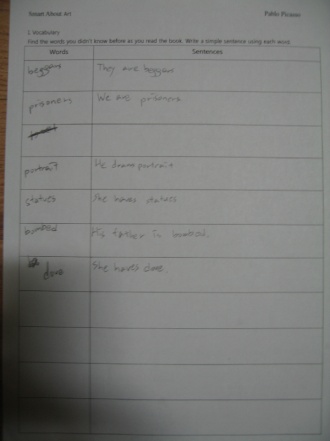 Smart About Art Pablo Picasso
I. Vocabulary
Find the words you didn't know before as you read the book. Write a simple sentence using each word.
Words Sentences
beggars They are beggars
prisoners We are prisoners
portrait He draws portrait
statues She haves statues
His father is
dove She haves dove.